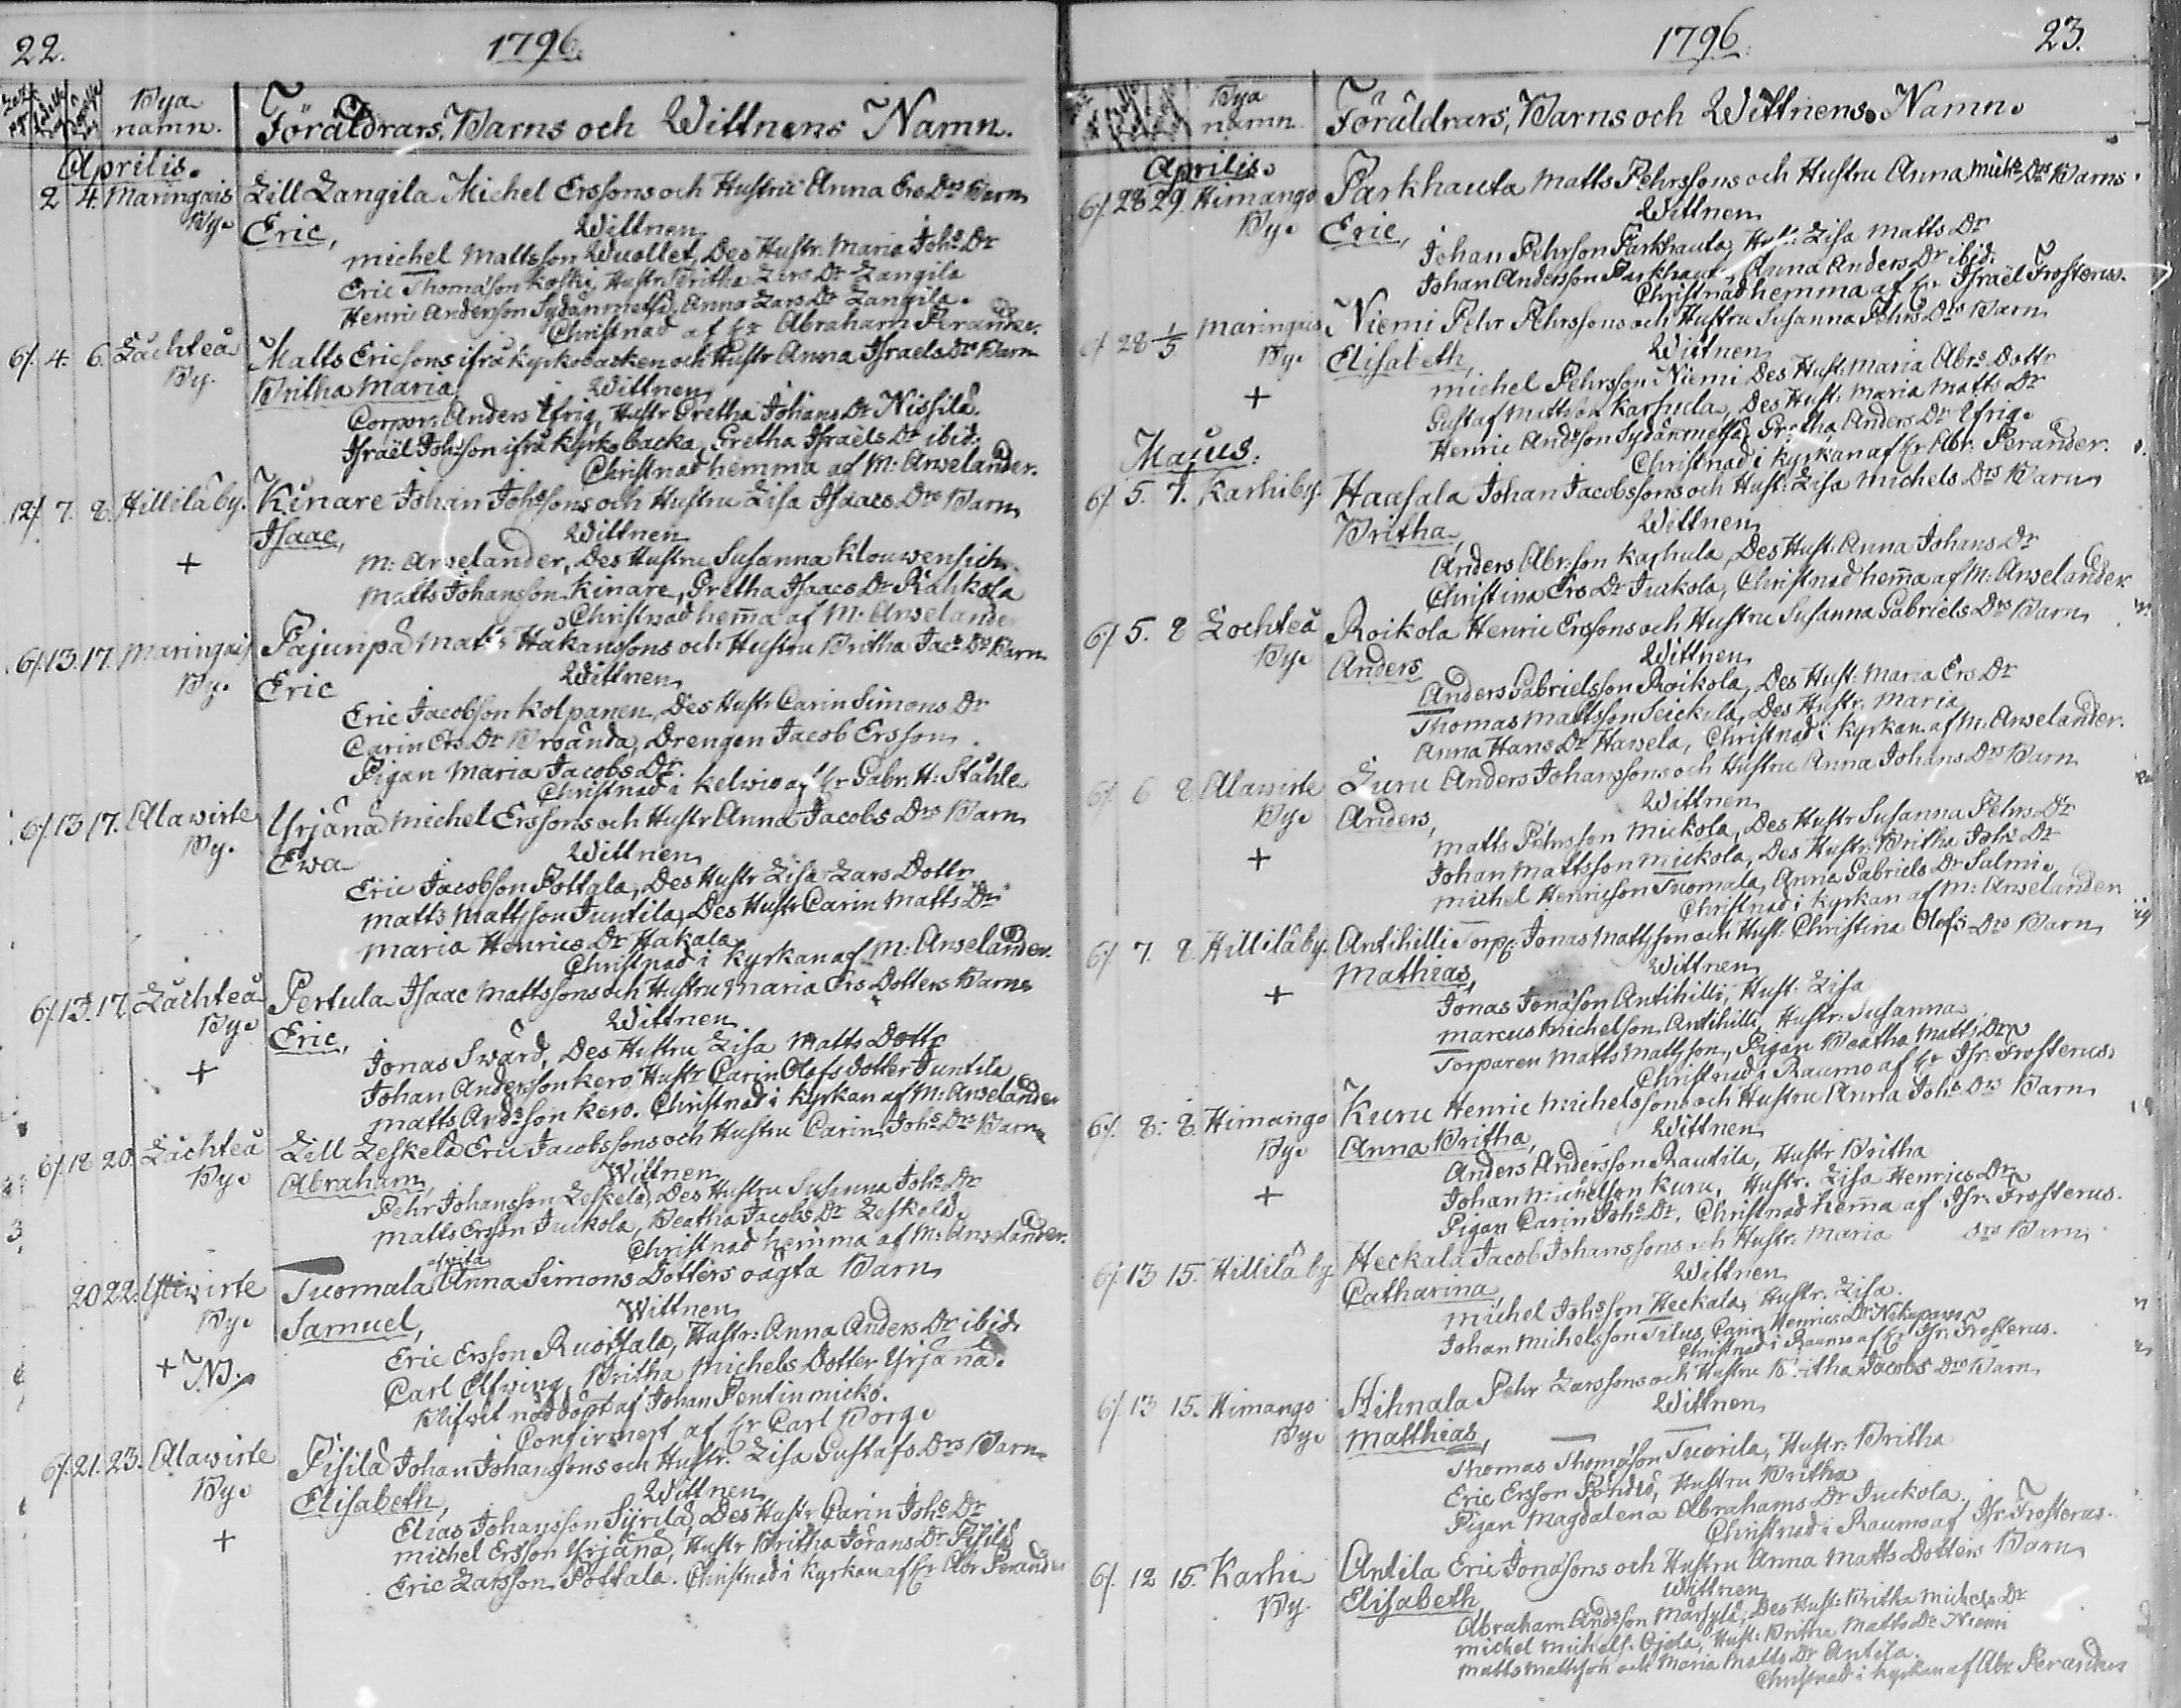 22.
1796.
Bya namn.
Föräldrars, Barns och Wittnens Namn.
Aprilis.
2 4. Maringais By. Lill Långila Michel Erssons och Hustru Anna Ers Drs Barn
Eric, Wittnen
Michel Mattsson Wuollet, Des Hustr. Maria Johs Dr
Eric Thomasson Koski, Hustr. Britha Lars Dr Långila
Henric Andersson Sydänmetsä, Anna Lars Dr Långila.
Christnad af Hr Abraham Perander.
6/. 4. 6. Låchteå By. Matts Ericsons ifrå Kyrkobacken och Hustr Anna Israels Dr Barn
Britha Maria, Wittnen
Corpor: Anders Ifrig, Hustr Gretha Johans Dr Nissilä.
Israël Johsson ifrå Kyrkobacka, Gretha Israëls Dr ibid.
Christnad hemma af M: Anselander.
12/. 7. 8. Hillilä by. Kinare Johan Johssons och Hustru Lisa Isaacs Drs Barn
Isaac, Wittnen
+ M: Anselander, Des Hustru Susanna Klouwensich
Matts Johansson Kinare, Gretha Isaacs Dr Rahkola
Christnad hem̄a af M: Anselander
6/. 13. 17. Maringais By. Pajunpä Matts Hakanssons och Hustru Britha Jacs Drs Barn
Eric Wittnen
Eric Jacobsson Kolpanen, Des Hustr Carin Simons Dr
Carin Ers Dr Broända, Drengen Jacob Ersson
Pigan Maria Jacobs Dr.
Christnad i Kelwio af Hr Gabr. H: Ståhle
6/. 13 17. Alawirte By. Yrjänä Michel Erssons och Hustr Anna Jacobs Drs Barn
Ewa Wittnen
Eric Jacobsson Pottala, Des Hustr Lisa Lars Dottr
Matts Mattsson Juntila, Des Hustr Carin Matts Dr
Maria Henrics Dr Hakala
Christnad i Kyrkan af M: Anselander.
6/. 13. 17. Låchteå By. Pertula Isaac Mattssons och Hustru Maria Ers Dotters Barn
Eric, Wittnen
+ Jonas Swärd, Des Hustru Lisa Matts Dottr
Johan Andersson Kero, Hustr Carin Olofs dotter Juntila
Matts Andsson Kero. Christnad i Kyrkan af M: Anselander
6/. 18 20. Låchteå By. Lill Leskelä Eric Jacobssons och Hustru Carin Johs Drs Barn
Abraham, Wittnen
Pehr Johansson Leskelä, Des Hustru Susanna Johs Dr
Matts Ersson Juckola, Beatha Jacobs Dr Leskelä.
Christnad hem̄a af M: Anselander.
20 22. Ytiwirte By. Tuomala afvita Anna Simons Dotters oägta Barn
Samuel, Wittnen
+ NB. Eric Ersson Ruottala, Hustr: Anna Anders Dr ibid
Carl Elfwing, Britha Michels Dotter Yrjänä.
Blifwit nöddöpt af Johan Pentinmicko.
Confirmert af Hr Carl Borg.
6/. 21. 23. Alawirte By. Pisilä Johan Johanssons och Hustr. Lisa Gustafs Drs Barn
Elisabeth, Wittnen
+ Elias Johansson Syrilä, Des Hustr Carin Johs Dr
Michel Ersson Yrjänä, Hustr Britha Jörans Dr Pisilä
Eric Larsson Pottala. Christnad i Kyrkan af Hr Abr Perander
1796.
23.
Bya namn.
Föräldrars, Barns och Wittnens Namn.
Aprilis.
6/. 28 29. Himango By. Parkhauta Matts Pehrssons och Hustru Anna Mich: Drs Barns
Eric, Wittnen
Johan Pehrsson Parkhauta, Hust: Lisa Matts Dr
Johan Andersson Parkhaut., Anna Anders Dr ibid.
Christnad hemma af Hr Israël Frosterus.
6/. 28 1/5 Maringais By. Niemi Pehr Pehrssons och Hustru Susanna Pehrs Drs Barn
Elisabeth, Wittnen
+ Michel Pehrsson Niemi Des Hust: Maria Abrs. Dottr
Gustaf Mattsson Karhula, Des Hust: Maria Matts Dr
Henric Andsson Sydänmetsä, Gretha Anders Dr Yfrig.
Christnad i Kyrkan af Hr Abr: Perander.
Majus.
6/. 5. 7. Karhi by. Haasala Johan Jacobssons och Hust: Lisa Michels Drs Barn
Britha, Wittnen
Anders Abr:son Karhula, Des Hust: Anna Johans Dr
Christina Ers Dr Juckola, Christnad hem̄a af M: Anselander
6/. 5. 8 Lochteå By. Roikola Henric Erssons och Hustru Susanna Gabriels Drs Barn
Anders Wittnen
Anders Gabrielsson Roikola, Des Hust: Maria Ers Dr
Thomas Mattsson Seickula, Des Hustr. Maria
Anna Hans Dr Hassela, Christnad i Kyrkan af M: Anselander.
6/. 6 8. Alawirte By. Luru Anders Johanssons och Hustru Anna Johans Drs Barn
Anders, Wittnen
+ Matts Pehrsson Mickola, Des Hustr Susanna Pehrs Dr
Johan Mattsson Mickola, Des Hustr: Britha Johs Dr
Michel Henricsson Tuomala, Anna Gabriels Dr Salmi.
Christnad i Kyrkan af M: Anselander
6/. 7. 8. Hillilä by. Antihilli Torp: Jonas Mattsson och Hust: Christina Olofs Drs Barn
Mathias, Wittnen
+ Jonas Jonasson Antihilli, Hust: Lisa
Marcus Michelsson Antihilli, Hustr: Susanna
Torparen Matts Mattsson, Pigan Beatha Matts Dr
Christnad i Raumo af Hr Isr: Frosterus
6/. 8. 8. Himango By. Kuru Henric Michelssons och Hustru Anna Johs Drs Barn
Anna Britha, Wittnen
+ Anders Andersson Rautila, Hustr Britha
Johan Michelsson Kuru, Hustr. Lisa Henrics Dr
Pigan Carin Johs Dr. Christnad hem̄a af Isr: Frosterus.
6/. 13 15. Hillilä by. Heckala Jacob Johanssons och Hustr: Maria Drs Barn
Catharina, Wittnen
Michel Johsson Heckala, Hustr. Lisa.
Johan Michelsson Titus, Carin Henrics Dr
Christnad i Raumo af Hr Isr: Frosterus.
6/. 13 15. Himango By. Hihnala Pehr Larssons och Hustru Britha Jacobs Drs Barn
Matthias, Wittnen
Thomas Thomasson Tuorila, Hustr: Britha
Eric Ersson Pöndiö, Hustru Britha
Pigan Magdalena Abrahams Dr Juckola.
Christnad i Raumo af Isr: Frosterus.
6/. 12 15. Karhi By. Antila Eric Jonassons och Hustru Anna Matts Dotters Barn
Elisabeth Wittnen
Abraham Andsson Marsylä, Des Hust: Britha Michels Dr
Michel Michelss. Ojala, Hust: Britha Matts Dr Niemi
Matts Mattsson och Maria Matts Dr Antila.
Christnad i Kyrkan af Abr. Perander